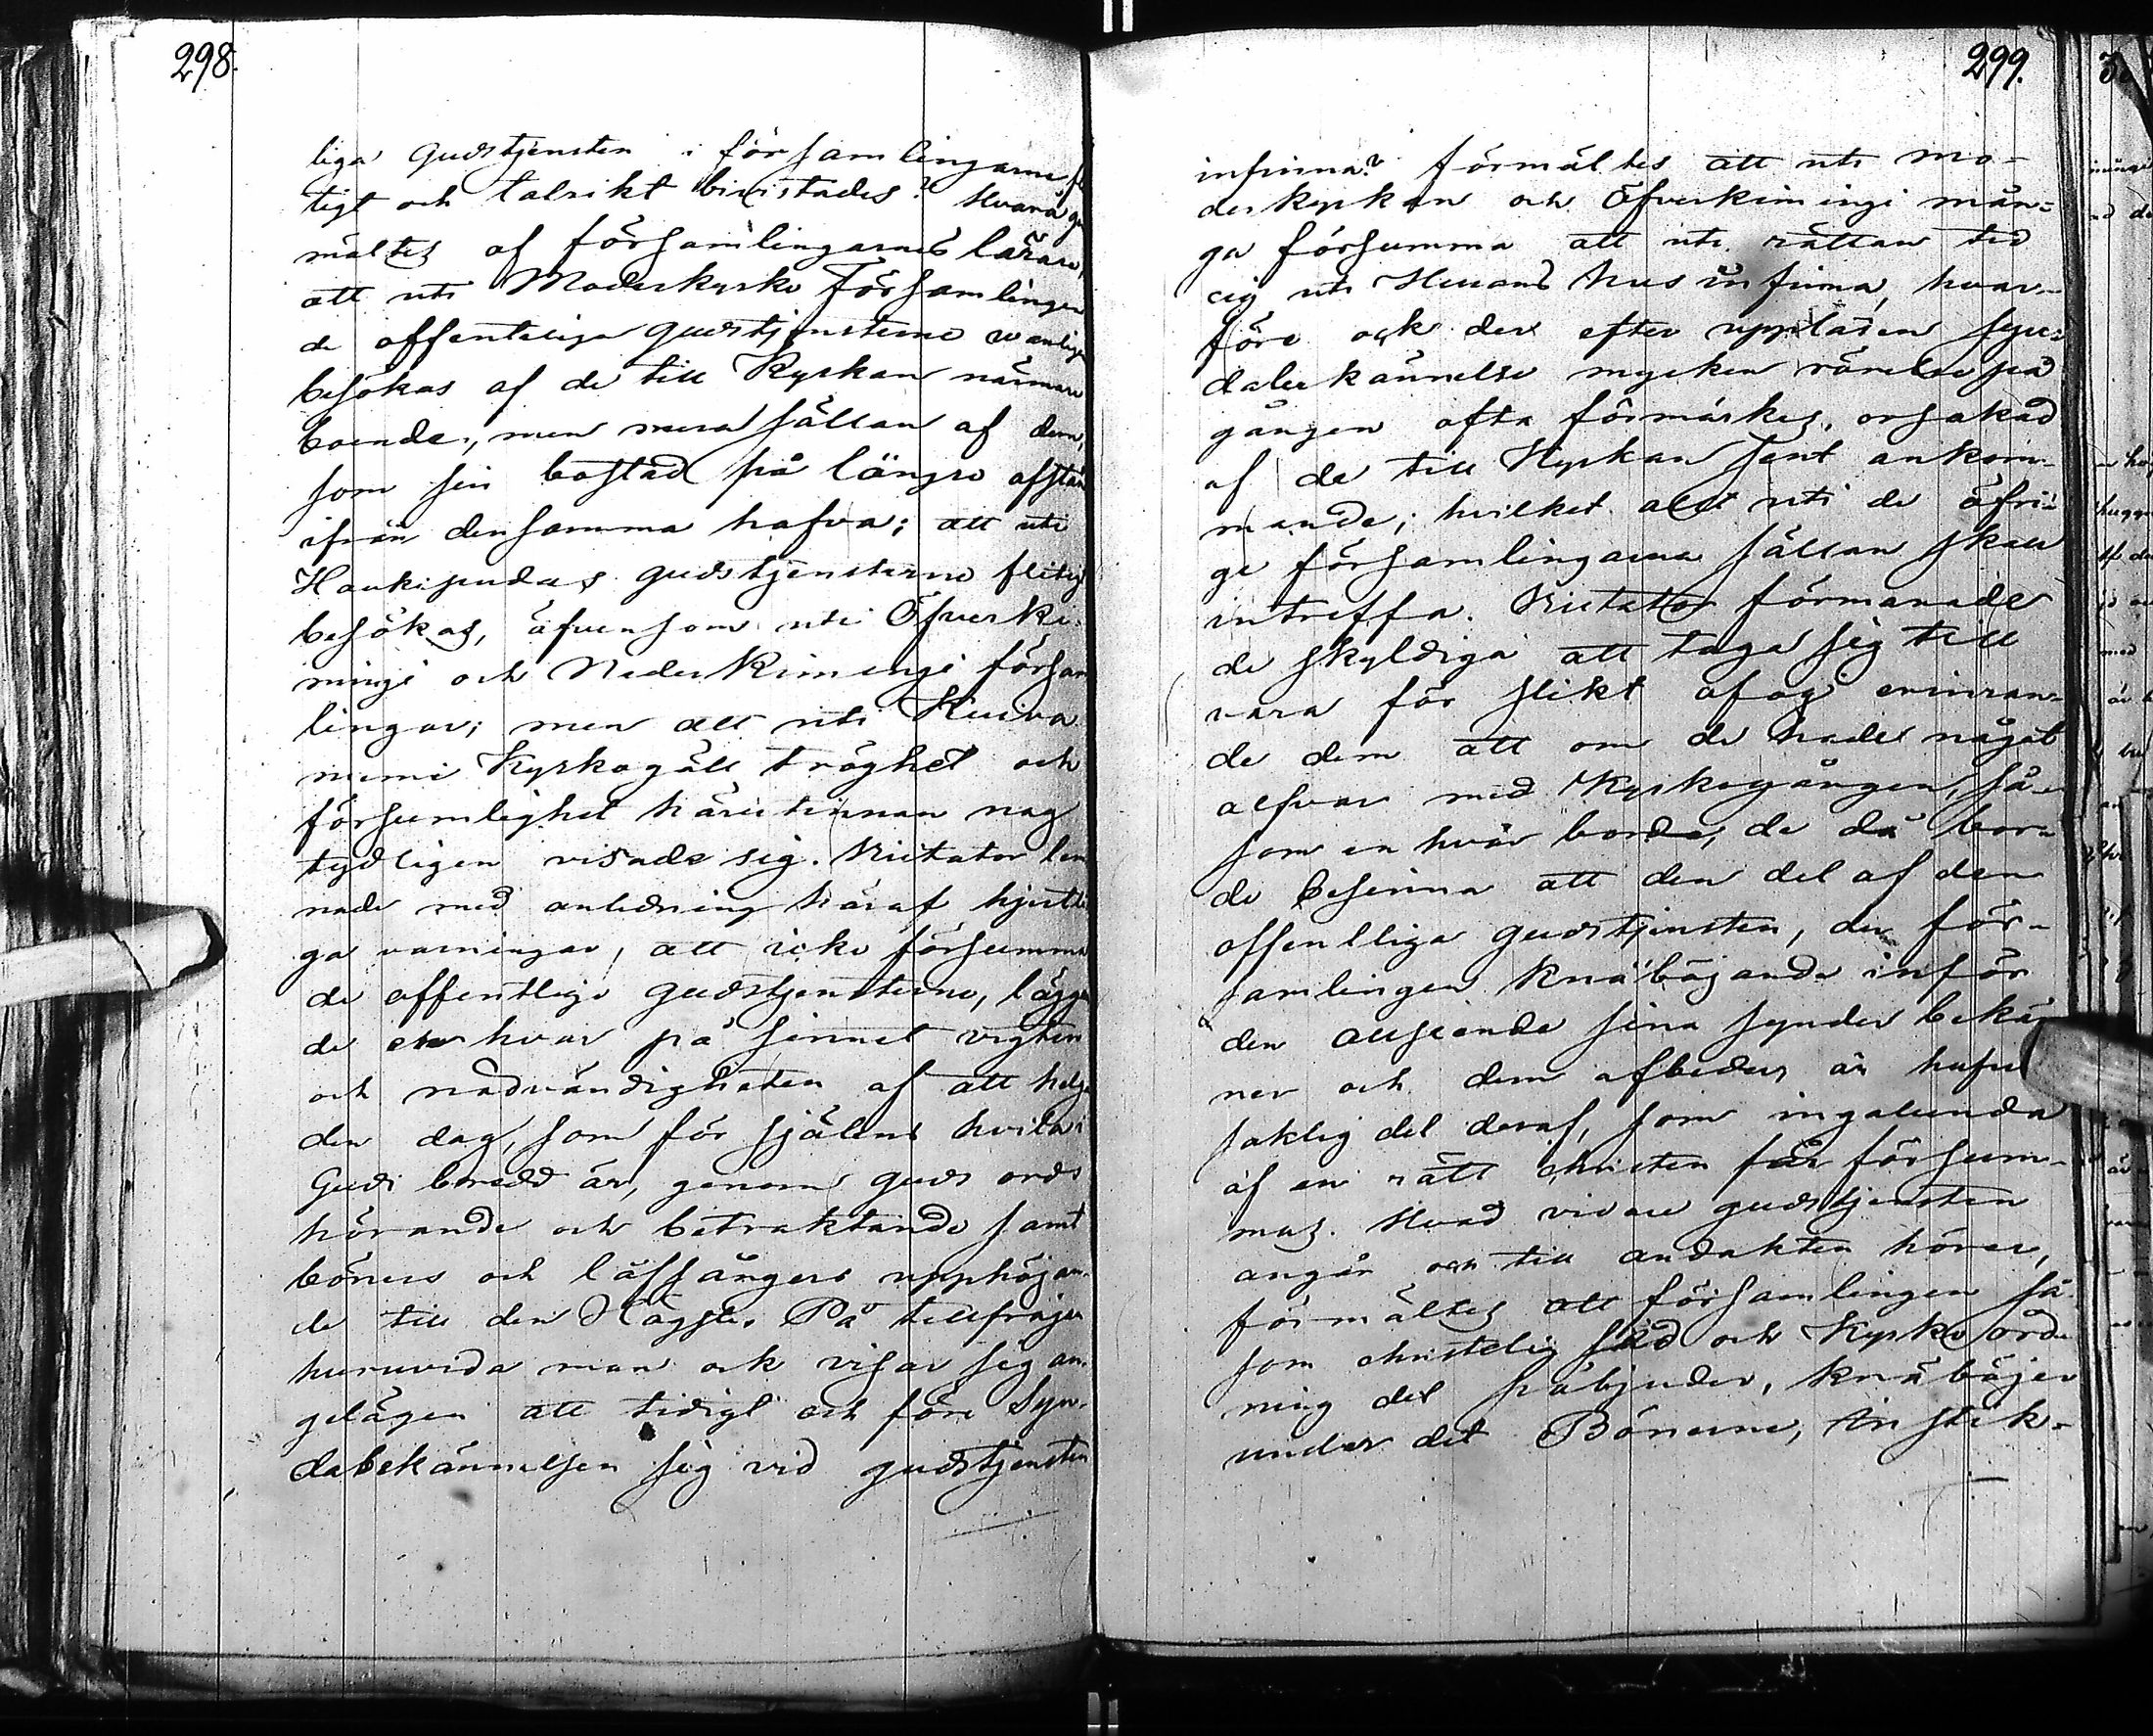 298.
liga Gudstjensten i församlingarne fli
tigt och talrikt bivistades? Hvarå ge
mältes af församlingarnes lärare,
att uti Moderkyrko Församlingen
de offentliga gudstjensterne vanlige
besökas af de till Kyrkan närmare
boende, men mera sällan af dem,
som sin bostad på längre afstån
ifrån densamma hafva; att uti
Haukipudas gudstjensterne flitigt
besökas, äfvensom uti Öfverki-
mingi och Nederkimingi försam
lingar; men att uti Kuiva
niemi Kyrkogäll tröghet och
försumlighet härutinnan nog
tydligen visade sig. Visitator lem
nade med anledning häraf hjertli
ga varningar, att icke försumma
de offentlige gudstjensterne, lägga
de hvar på sinnet vigten
och nödvändigheten af att helga
den dag, som för själens hvila i
Gudi beredd är, genom guds ords
hörande och betraktande samt
böners och låfsångers upphöjan-
de till den Högste. På tillfrågan
huruvida man ock visar sig an-
gelägen att tidigt och före Syn-
dabekännelsen sig vid gudstjensten
299.
infinna? förmältes att uti mo-
derkyrkan och Öfverkimingi mån-
ga försumma att uti rättan tid
sig uti Herrans hus infinna, hvar-
före ock der efter uppläsen syn-
dabekännelse mycken rörelse på
gången ofta förmärkes, orsakad
af de till Kyrkan sent ankom-
mande; hvilket allt uti de öfri-
ge församlingarna sällan skall
intreffa. Visitator förmanade
de skyldiga att taga sig till
vara för slikt ofog erinran-
de dem att om de hade något
alfvar med Kyrkogången, så-
som en hvar borde, de då bor-
de besinna att den del af den
offentliga gudstjensten, der för-
samlingen knäböjande inför
den allseende sina synder bekän
ner och dem afbeder är hufvud
saklig del deraf, som ingalunda
af en rätt christen får försum-
mas. Hvad vidare gudstjensten
angår och till andakten hörer,
förmältes att församlingen så-
som christelig sed och Kyrko ord-
ning det påbjuder, knäböjer
under det Bönerne, Instik-